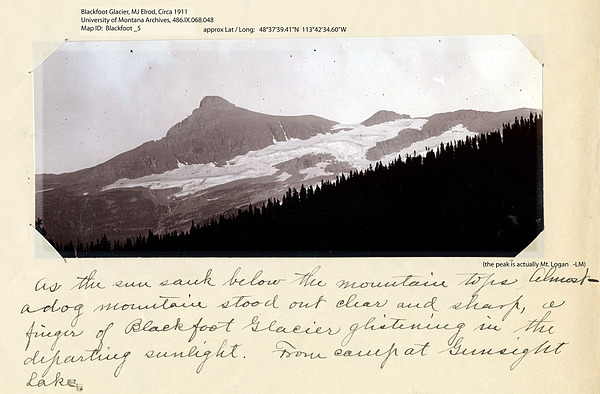 Blackfoot Glacier, MJ Elrod, Circa 1911
University of Montana Archives, 486.IX.068.048
Map ID: Blackfoot _5 approx Lat / Long: 48°37'39.41"N 113°42'34.60"W
(the peak is actually Mt. Logan -LM)
As the sun sank below the mountain tops Almost-
adog mountain stood out clear and sharp, a
finger of Blackfoot Glacier glistening in the
departing sunlight. From camp at Gunsight
Lake.